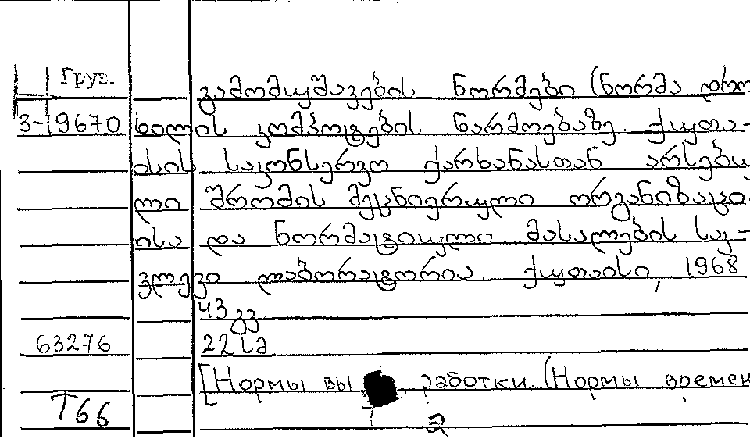 Груз.
გამომუშავების ნორმები (ნორმა დრო
3-9670 ხილის კომპოტების წარმოებაზე. ქუთა-
ისის საკონსერვო ქარხანასთან არსებუ
ლი შრომის მეცნიერული ორგანიზაცი
ისა და ნორმატიული მასალების საკ-
ვლევი ლაბორატორია. ქუთაისი, 1968
43 გვ
63276 22 სმ
[Нормы вы работки. (Нормы времен
Т66